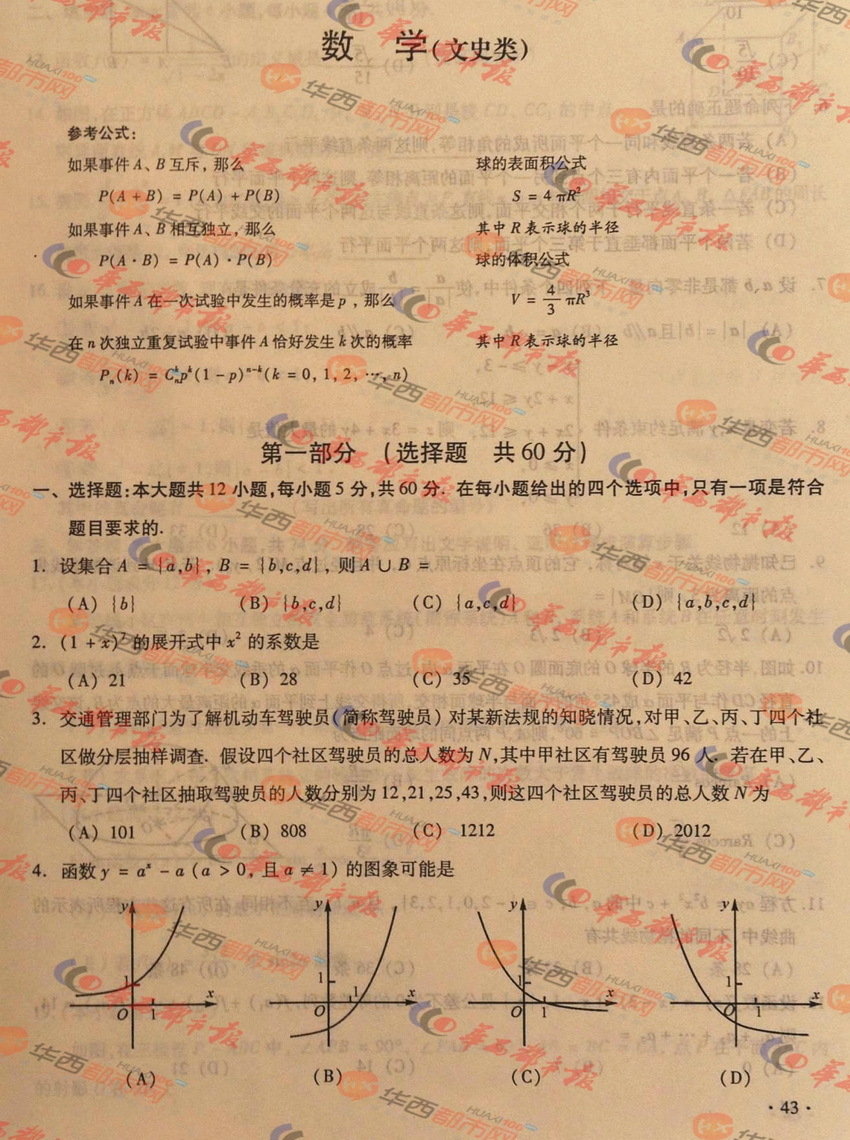 数 学(文史类)
参考公式:
如果事件A、B互斥,那么
P(A + B) = P(A) + P(B)
如果事件A、B相互独立,那么
P(A · B) = P(A) · P(B)
如果事件A在一次试验中发生的概率是p,那么
在n次独立重复试验中事件A恰好发生k次的概率
Pₙ(k) = Cₙᵏpᵏ(1 - p)ⁿ⁻ᵏ(k = 0, 1, 2, …, n)
球的表面积公式
S = 4πR²
其中R表示球的半径
球的体积公式
V = 4/3 πR³
其中R表示球的半径
第一部分 (选择题 共60分)
一、选择题:本大题共12小题,每小题5分,共60分. 在每小题给出的四个选项中,只有一项是符合
题目要求的.
1. 设集合A = {a,b}, B = {b,c,d}, 则A ∪ B =
(A) {b} (B) {b,c,d} (C) {a,c,d} (D) {a,b,c,d}
2. (1 + x)⁷的展开式中x²的系数是
(A) 21 (B) 28 (C) 35 (D) 42
3. 交通管理部门为了解机动车驾驶员(简称驾驶员)对某新法规的知晓情况,对甲、乙、丙、丁四个社
区做分层抽样调查. 假设四个社区驾驶员的总人数为N,其中甲社区有驾驶员96人. 若在甲、乙、
丙、丁四个社区抽取驾驶员的人数分别为12,21,25,43,则这四个社区驾驶员的总人数N为
(A) 101 (B) 808 (C) 1212 (D) 2012
4. 函数y = aˣ - a (a > 0, 且a ≠ 1) 的图象可能是
y 1 O 1 x
y 1 O 1 x
y 1 O 1 x
y 1 O 1 x
(A) (B) (C) (D)
· 43 ·
华西都市报
华西都市网
HUAXI100.com